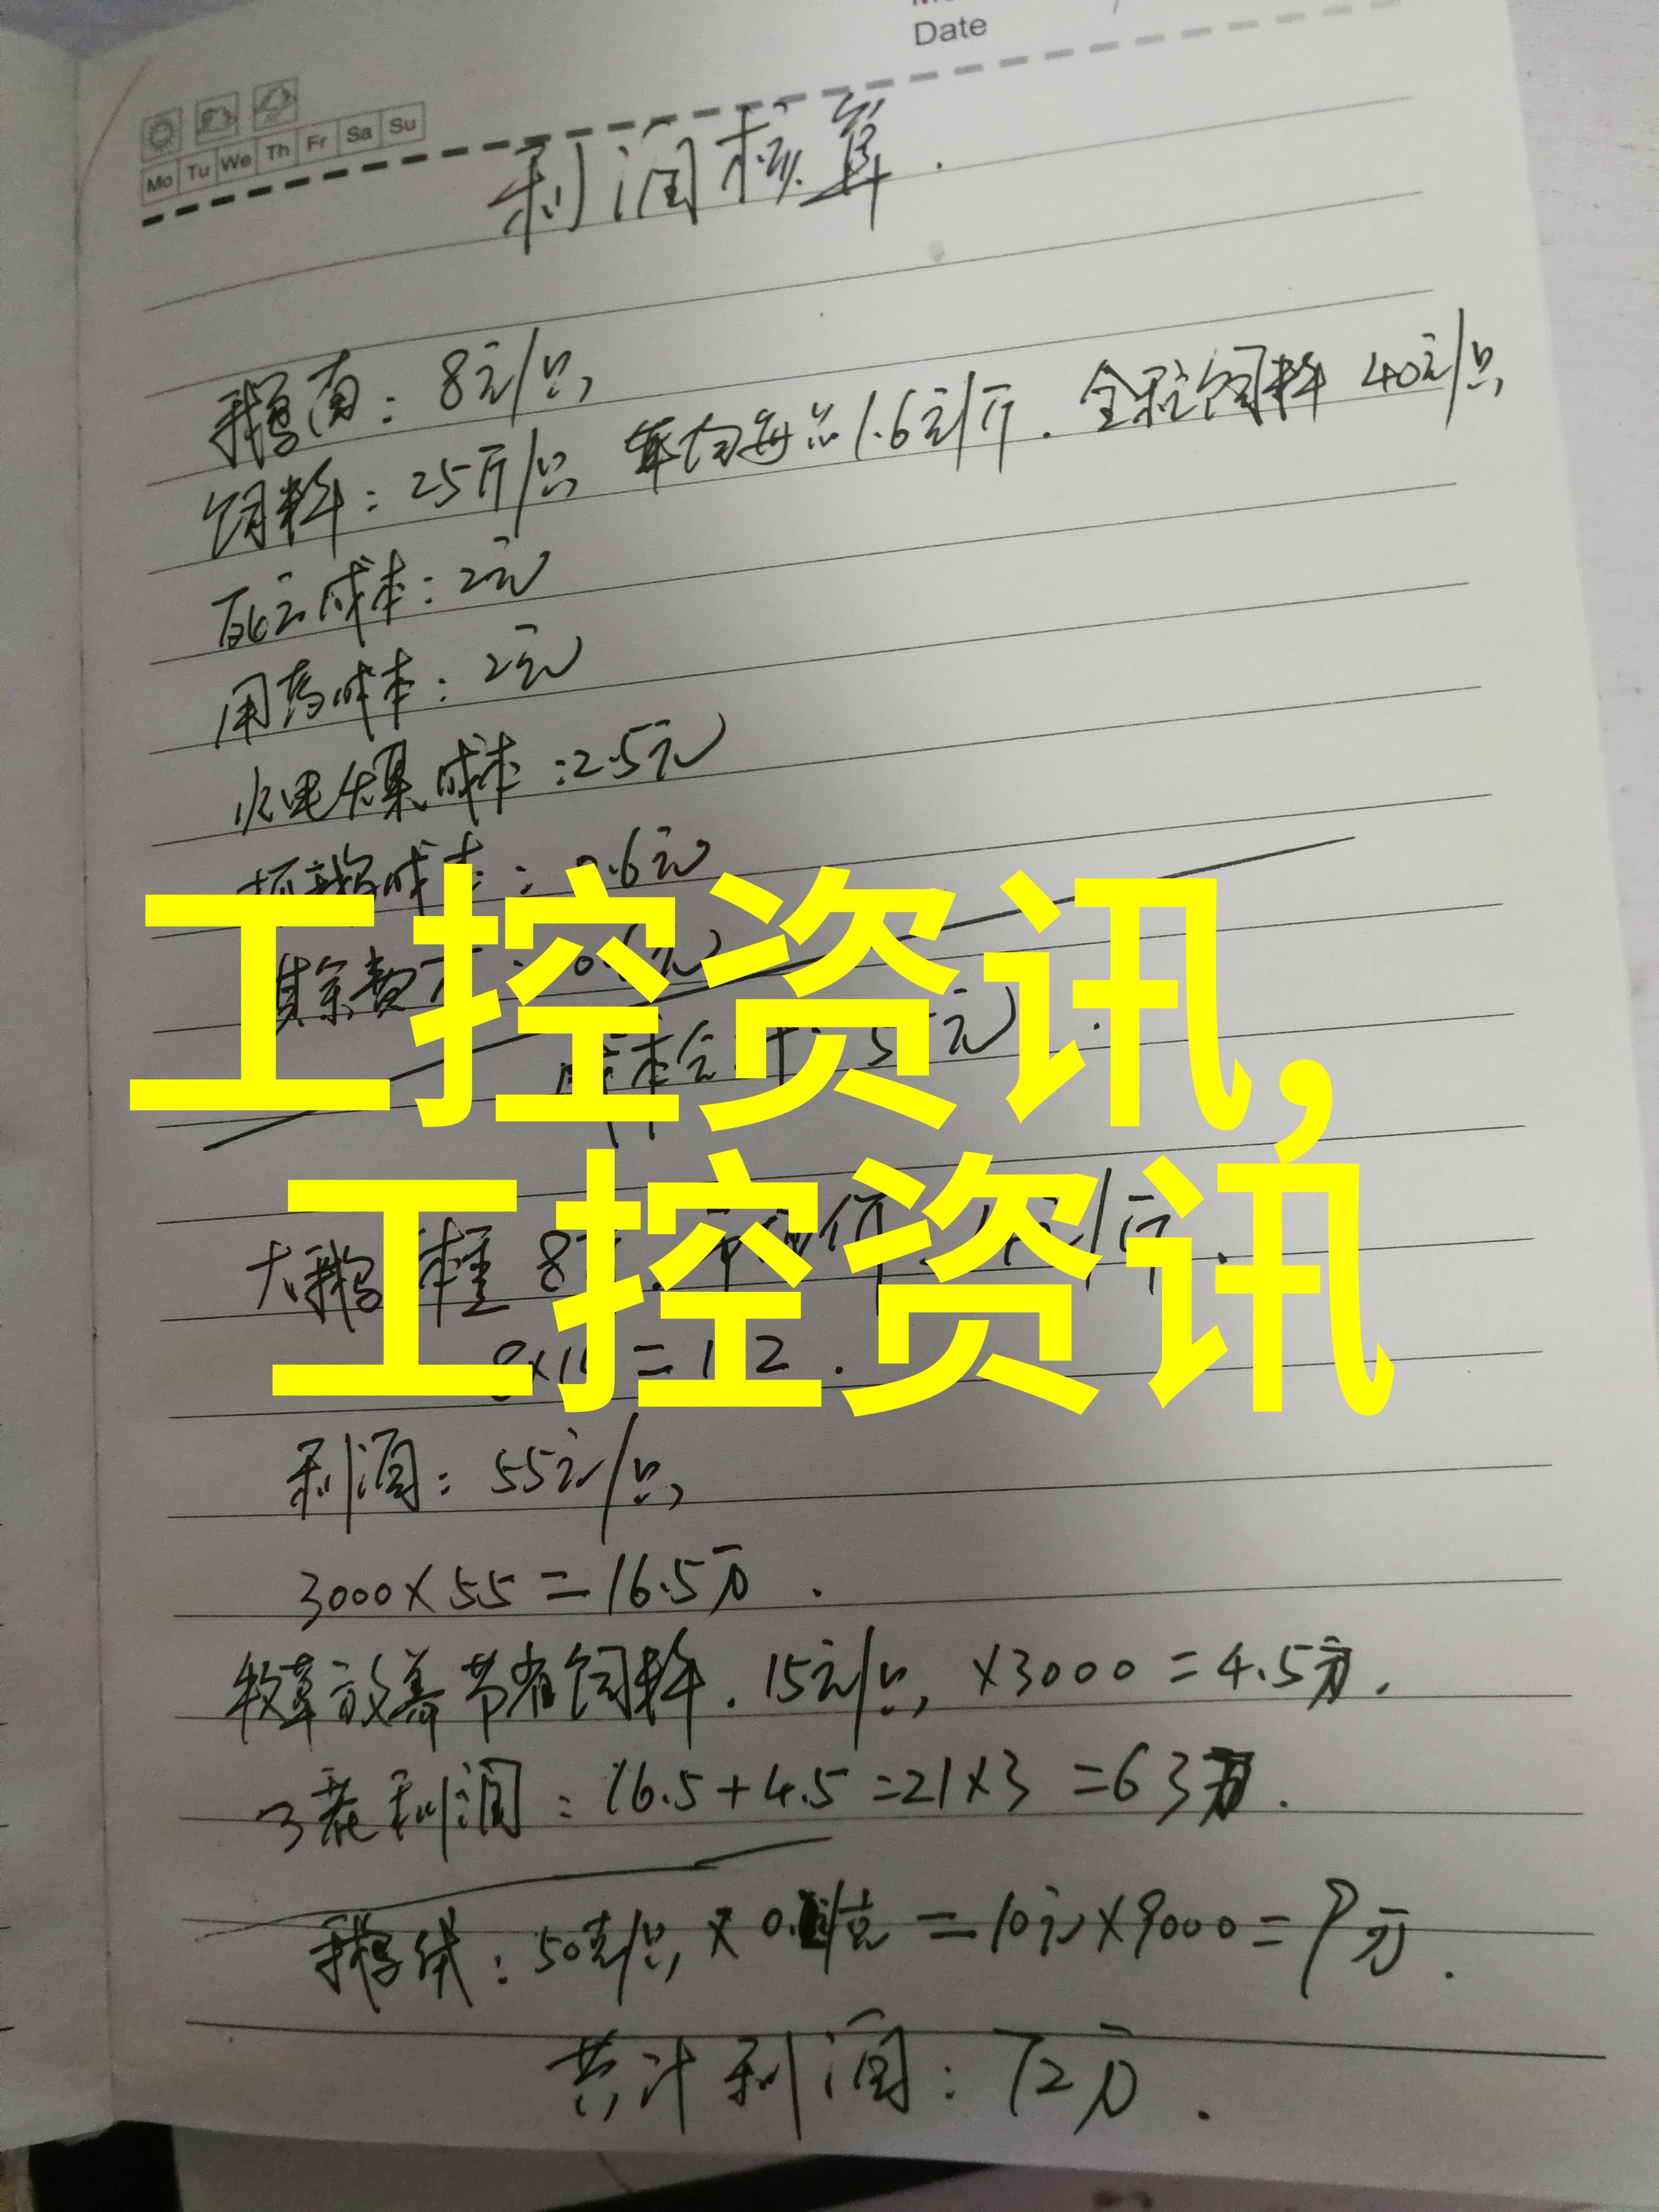 Date
Mo Tu We Th Fr Sa Su
利润核算.
鹅苗: 8元/只
饲料: 25斤/只 年均每 1.6元/斤. 全程饲料 40元/只
死亡成本: 2元
用药成本: 2元
水电煤成本: 2.5元
成本: .6元
其余费
工控资讯,
工控资讯
大鹅体重 8
利润: 55元/只
3000×55=16.5万.
牧草放养节省饲料. 15元/只 ×3000=4.5万.
3茬利润: 16.5+4.5=21×3=63万.
鹅绒: 50克/只 × 0. /克 = 10元×9000=9万.
共计利润: 72万.